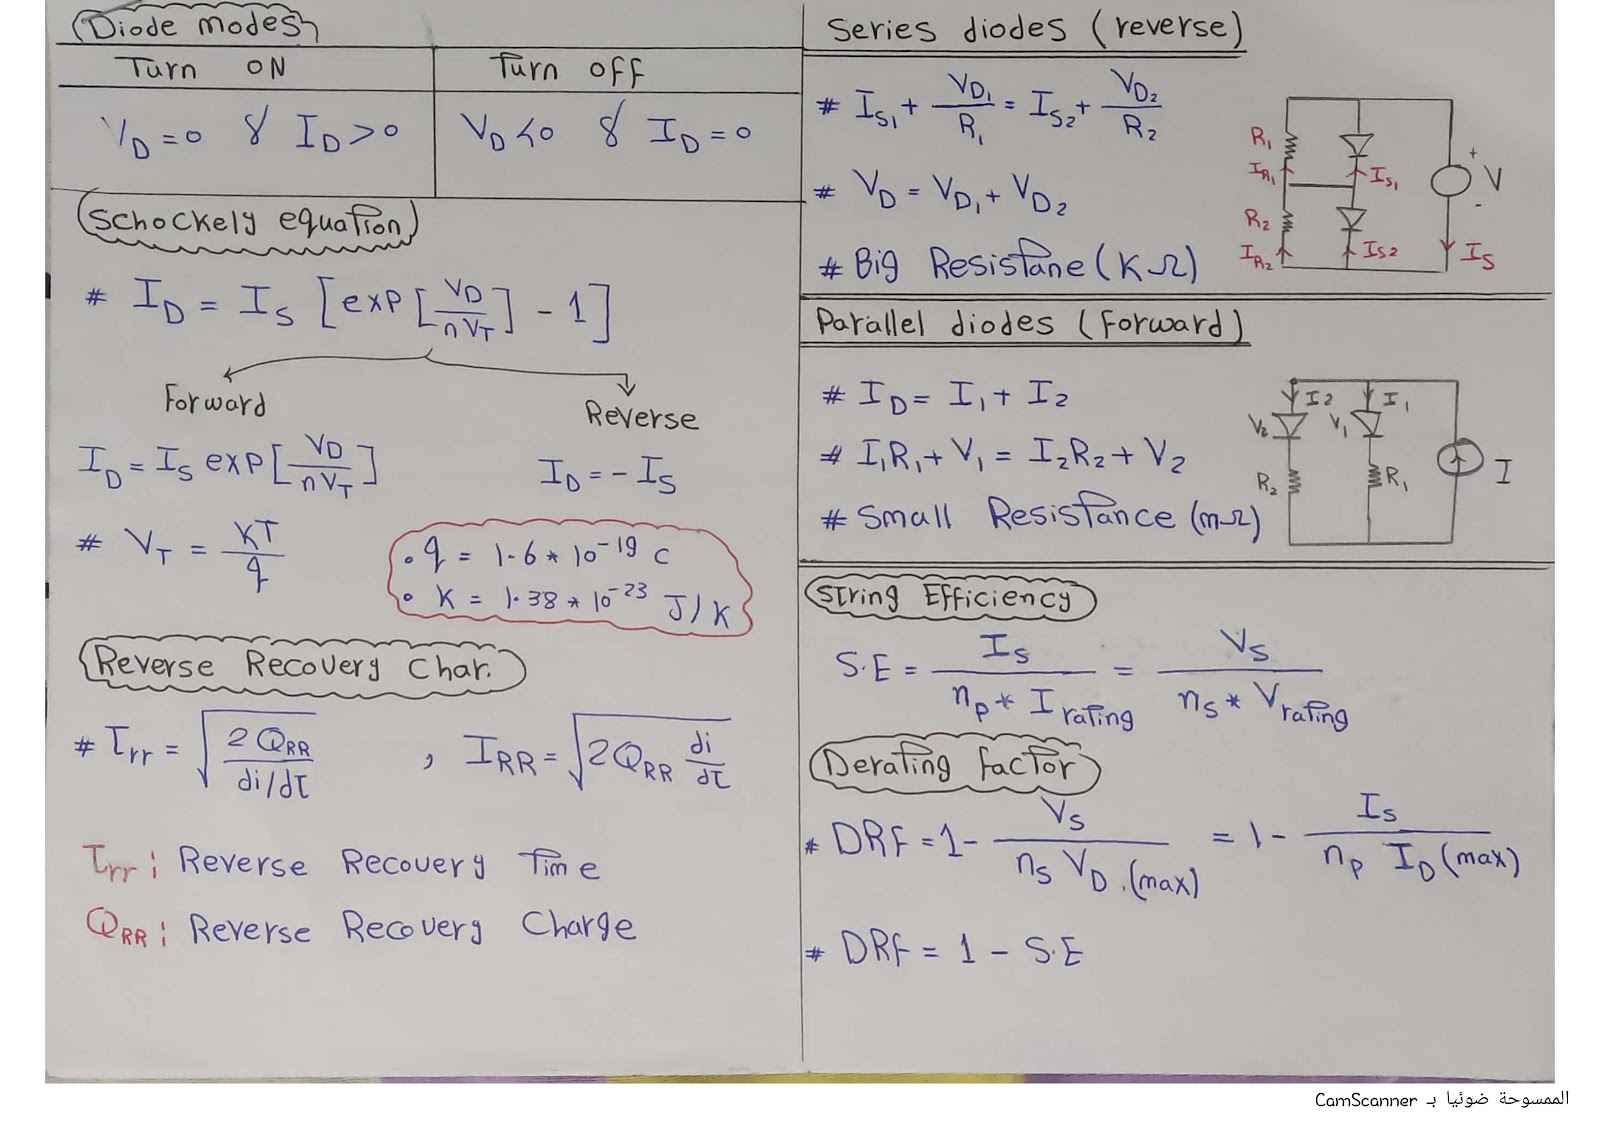 Diode modes
Turn ON
Turn off
V_D = 0 & I_D > 0
V_D < 0 & I_D = 0
Schockely equation
# I_D = I_S [exp[V_D / nV_T] - 1]
Forward
Reverse
I_D = I_S exp[V_D / nV_T]
I_D = - I_S
# V_T = KT / q
• q = 1.6 * 10^-19 C
• K = 1.38 * 10^-23 J/K
Reverse Recovery Char.
# t_rr = √(2 Q_RR / di/dt) , I_RR = √(2Q_RR di/dt)
t_rr : Reverse Recovery Time
Q_RR : Reverse Recovery Charge
Series diodes (reverse)
# I_S1 + V_D1 / R_1 = I_S2 + V_D2 / R_2
# V_D = V_D1 + V_D2
# Big Resistane (KΩ)
R_1
I_R1
I_S1
R_2
I_R2
I_S2
+
V
-
I_S
Parallel diodes (Forward)
# I_D = I_1 + I_2
# I_1R_1 + V_1 = I_2R_2 + V_2
# Small Resistance (mΩ)
I_2
I_1
V_2
V_1
R_2
R_1
I
String Efficiency
S.E = I_S / n_p * I_rating = V_S / n_s * V_rating
Derating factor
# DRF = 1 - V_S / n_s V_D.(max) = 1 - I_S / n_p I_D(max)
# DRF = 1 - S.E
الممسوحة ضوئيا بـ CamScanner